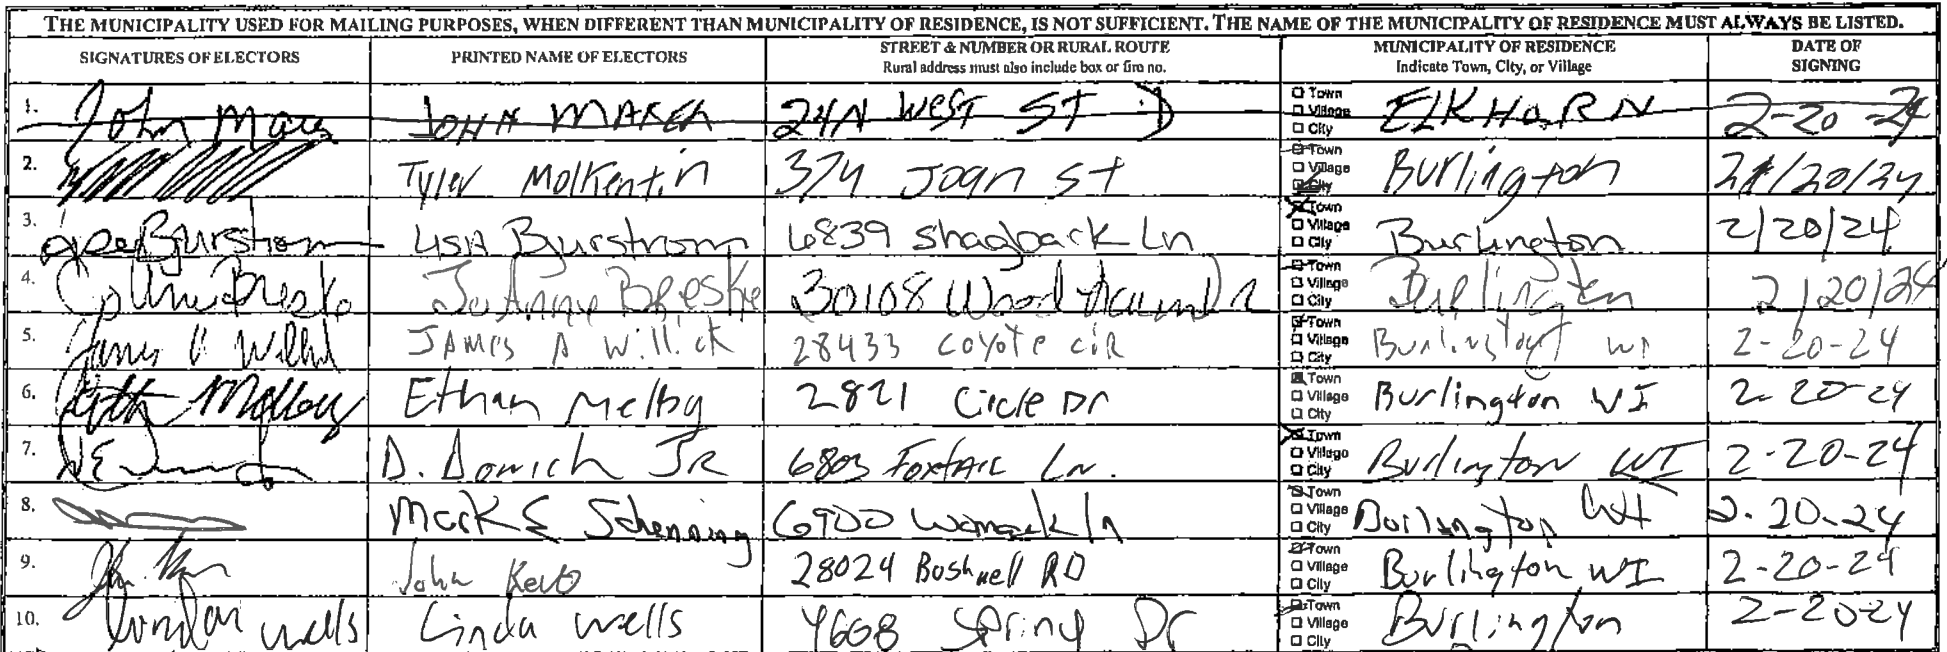 THE MUNICIPALITY USED FOR MAILING PURPOSES, WHEN DIFFERENT THAN MUNICIPALITY OF RESIDENCE, IS NOT SUFFICIENT. THE NAME OF THE MUNICIPALITY OF RESIDENCE MUST ALWAYS BE LISTED.
SIGNATURES OF ELECTORS PRINTED NAME OF ELECTORS STREET & NUMBER OR RURAL ROUTE Rural address must also include box or fire no. MUNICIPALITY OF RESIDENCE Indicate Town, City, or Village DATE OF SIGNING
1. John JOHN 24N WEST ST Town Village City ELKHORN 2-20-24
2. Tyler Molkentin 374 Joan St Town Village City Burlington 2/20/24
3. Bjurstrom LISA Bjurstrom 6839 Shagbark Ln Town Village City Burlington 2/20/24
4. JoAnne Breske 30108 Town Village City Burlington 2/20/24
5. James A Willick 28433 Coyote Cir Town Village City Burlington WI 2-20-24
6. Melby Ethan Melby 2821 Circle Dr Town Village City Burlington WI 2-20-24
7. D. JR 6803 Ln. Town Village City Burlington WI 2-20-24
8. Mark E Schenning 6900 Ln Town Village City Burlington WI 2-20-24
9. John 28024 Bushnell RD Town Village City Burlington WI 2-20-24
10. Wells Linda Wells 4608 Spring Dr Town Village City Burlington 2-20-24